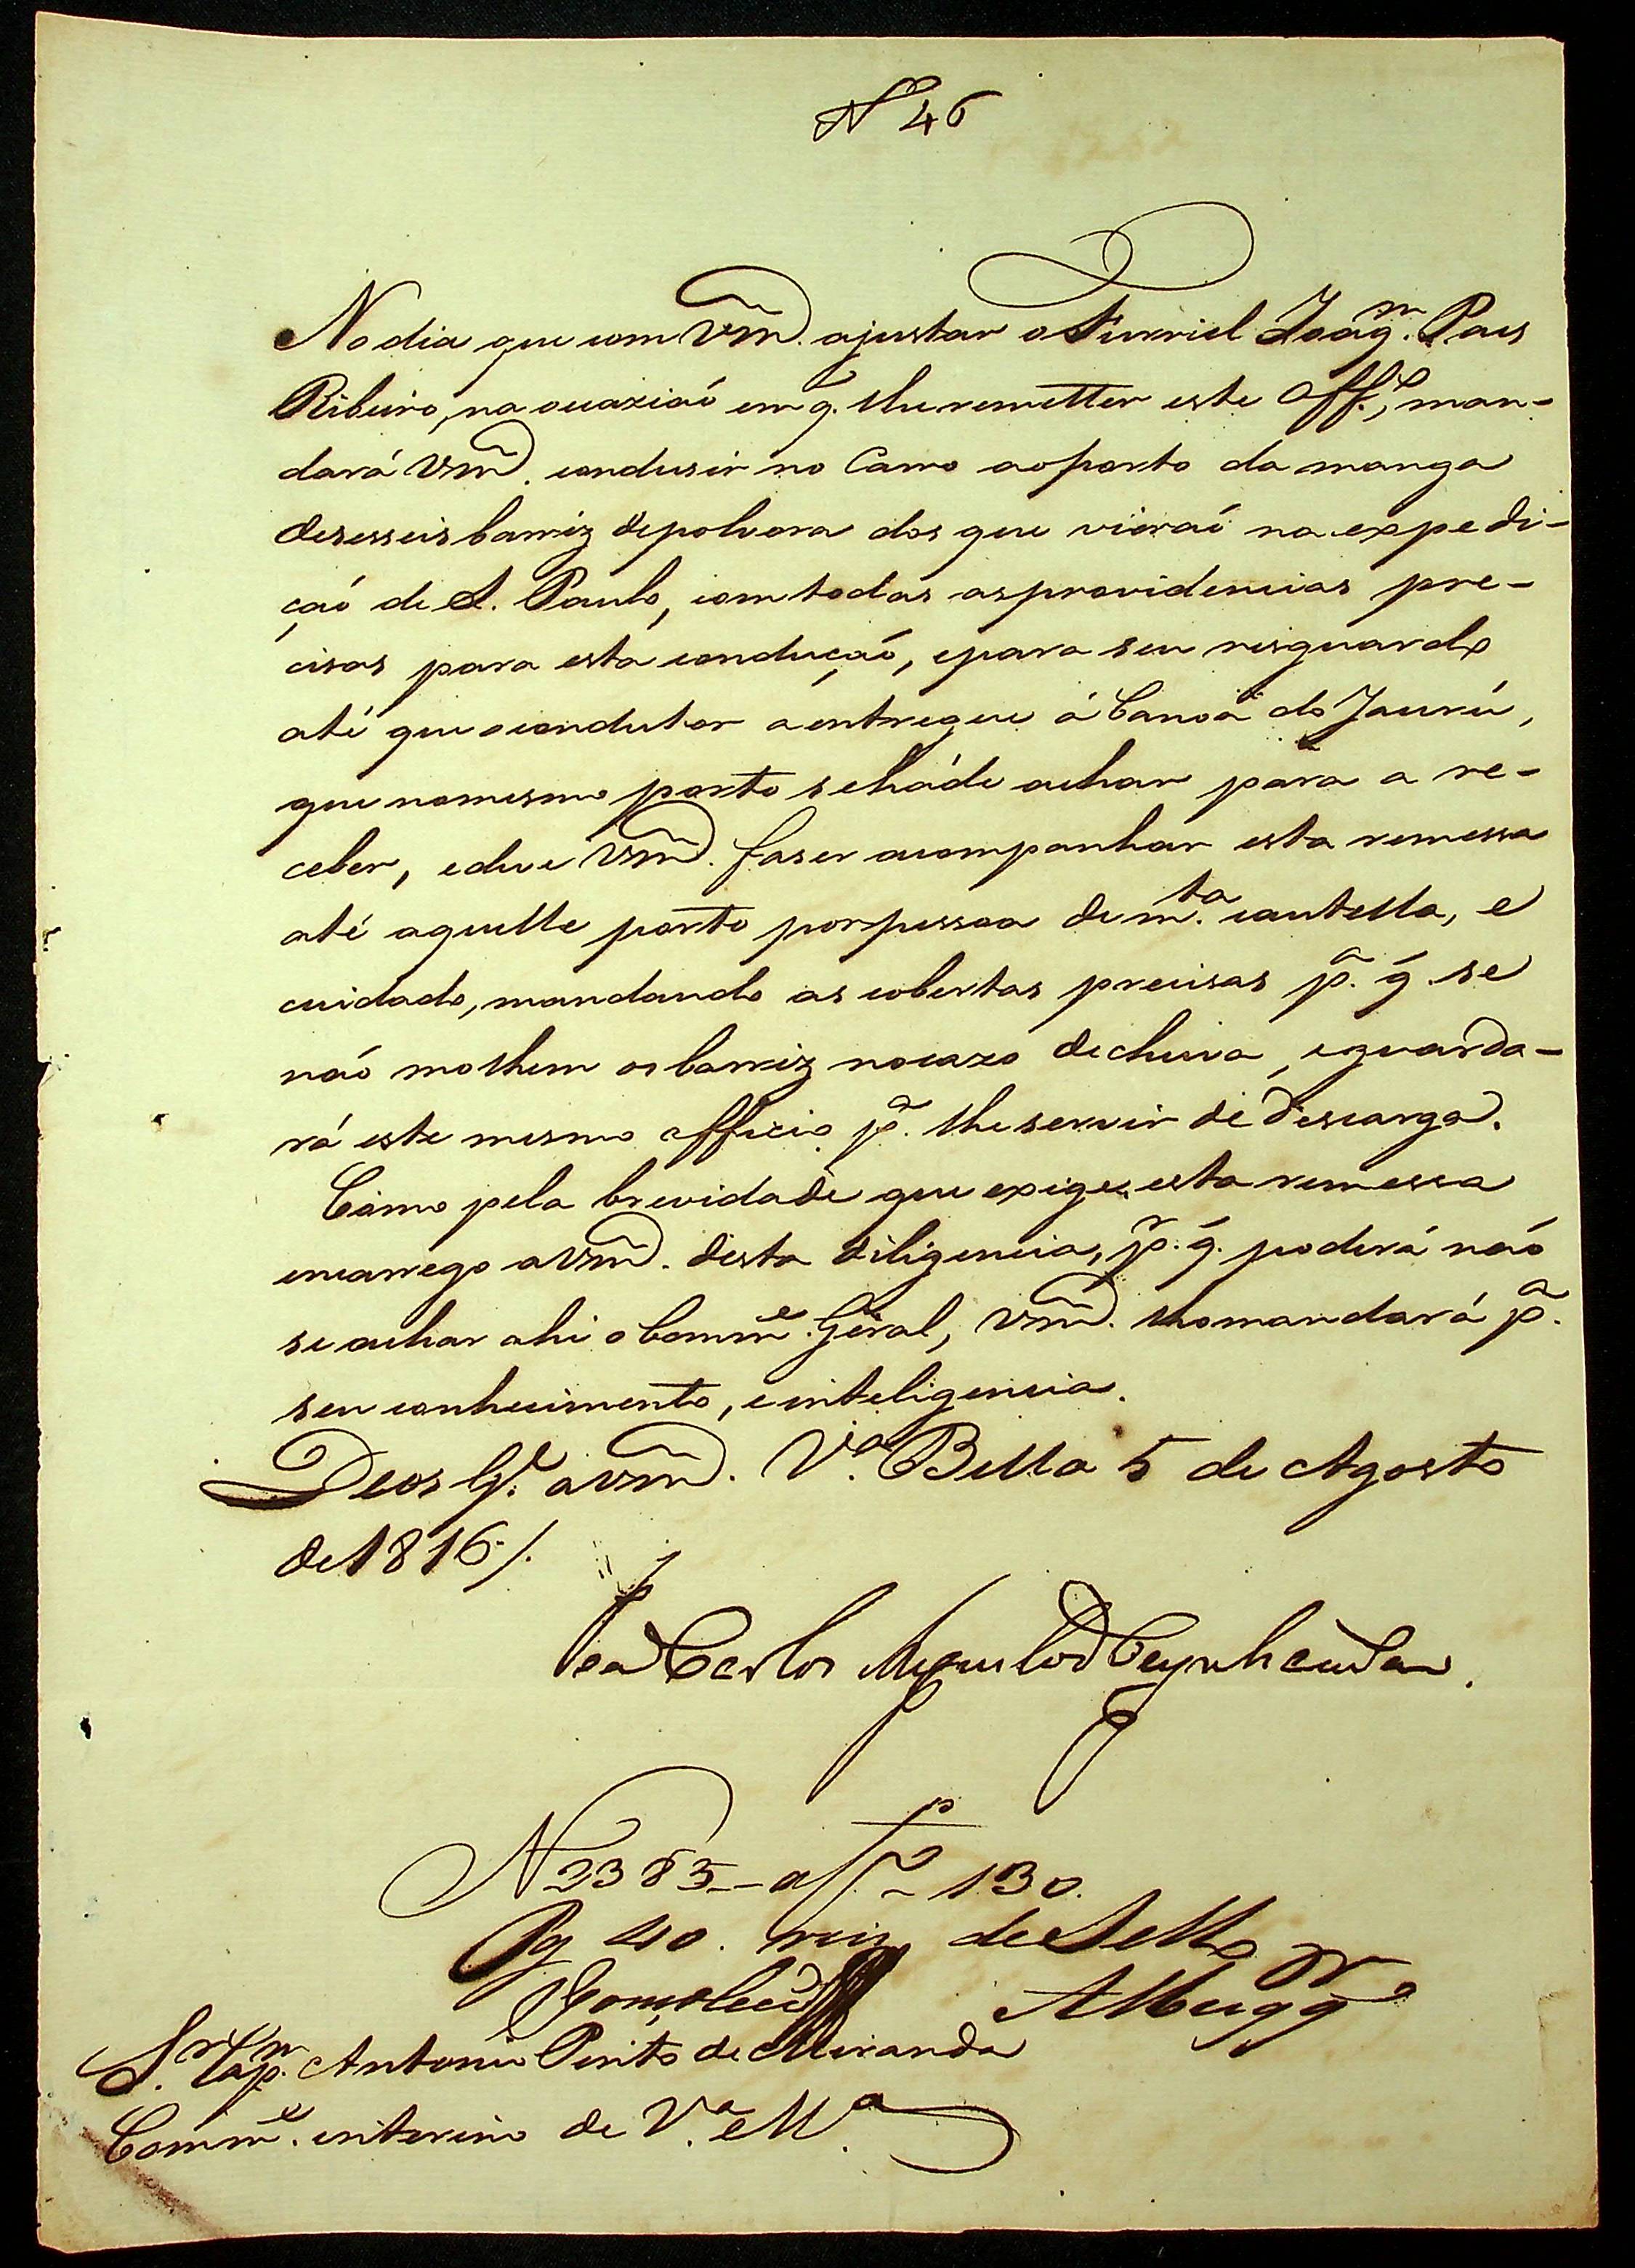 Nº 46
No dia que com Vm̃. ajustar o Furriel Joaq.m Paes
Ribeiro, na ocaziaó em q̃. lhe remetter este Off.º, man-
dará Vm̃. condusir no Carro ao porto da manga
desesseis barriz de polvora dos que vieraó na expedi-
çaó de S. Paulo, com todas as providencias pre-
cisas para esta conduçaó, e para seu resguardo
até que o condutor a entregue á Canoa do Jaurú,
que no mesmo porto se háde achar para a re-
ceber, e deve Vm̃. faser acompanhar esta remessa
até aquelle porto por pessoa de m.ta cautella, e
cuidado, mandando as cobertas precisas p.ª q̃. se
naó molhem os barriz no cazo de chuva, e guarda-
rá este mesmo officio p.ª lhe servir de descarga.
Como pela brevidade que exige esta remessa
encarrego a Vm̃. desta diligencia, p.r q̃. poderá naó
se achar ahi o Comm.e Geral, Vm̃. lho mandará p.ª
seu conhecimento, e inteligencia.
Deos G.e a Vm̃. V.ª Bella 5 de Agosto
de 1816 /.
Joaõ Carlos Augusto d'Oeynhausen.
N 2383 — a f. 130.
Pg 40. reis de Sello
Sr. Cap.m Antonio Pinto de Miranda
Comm.e interino de V.ª M.ª